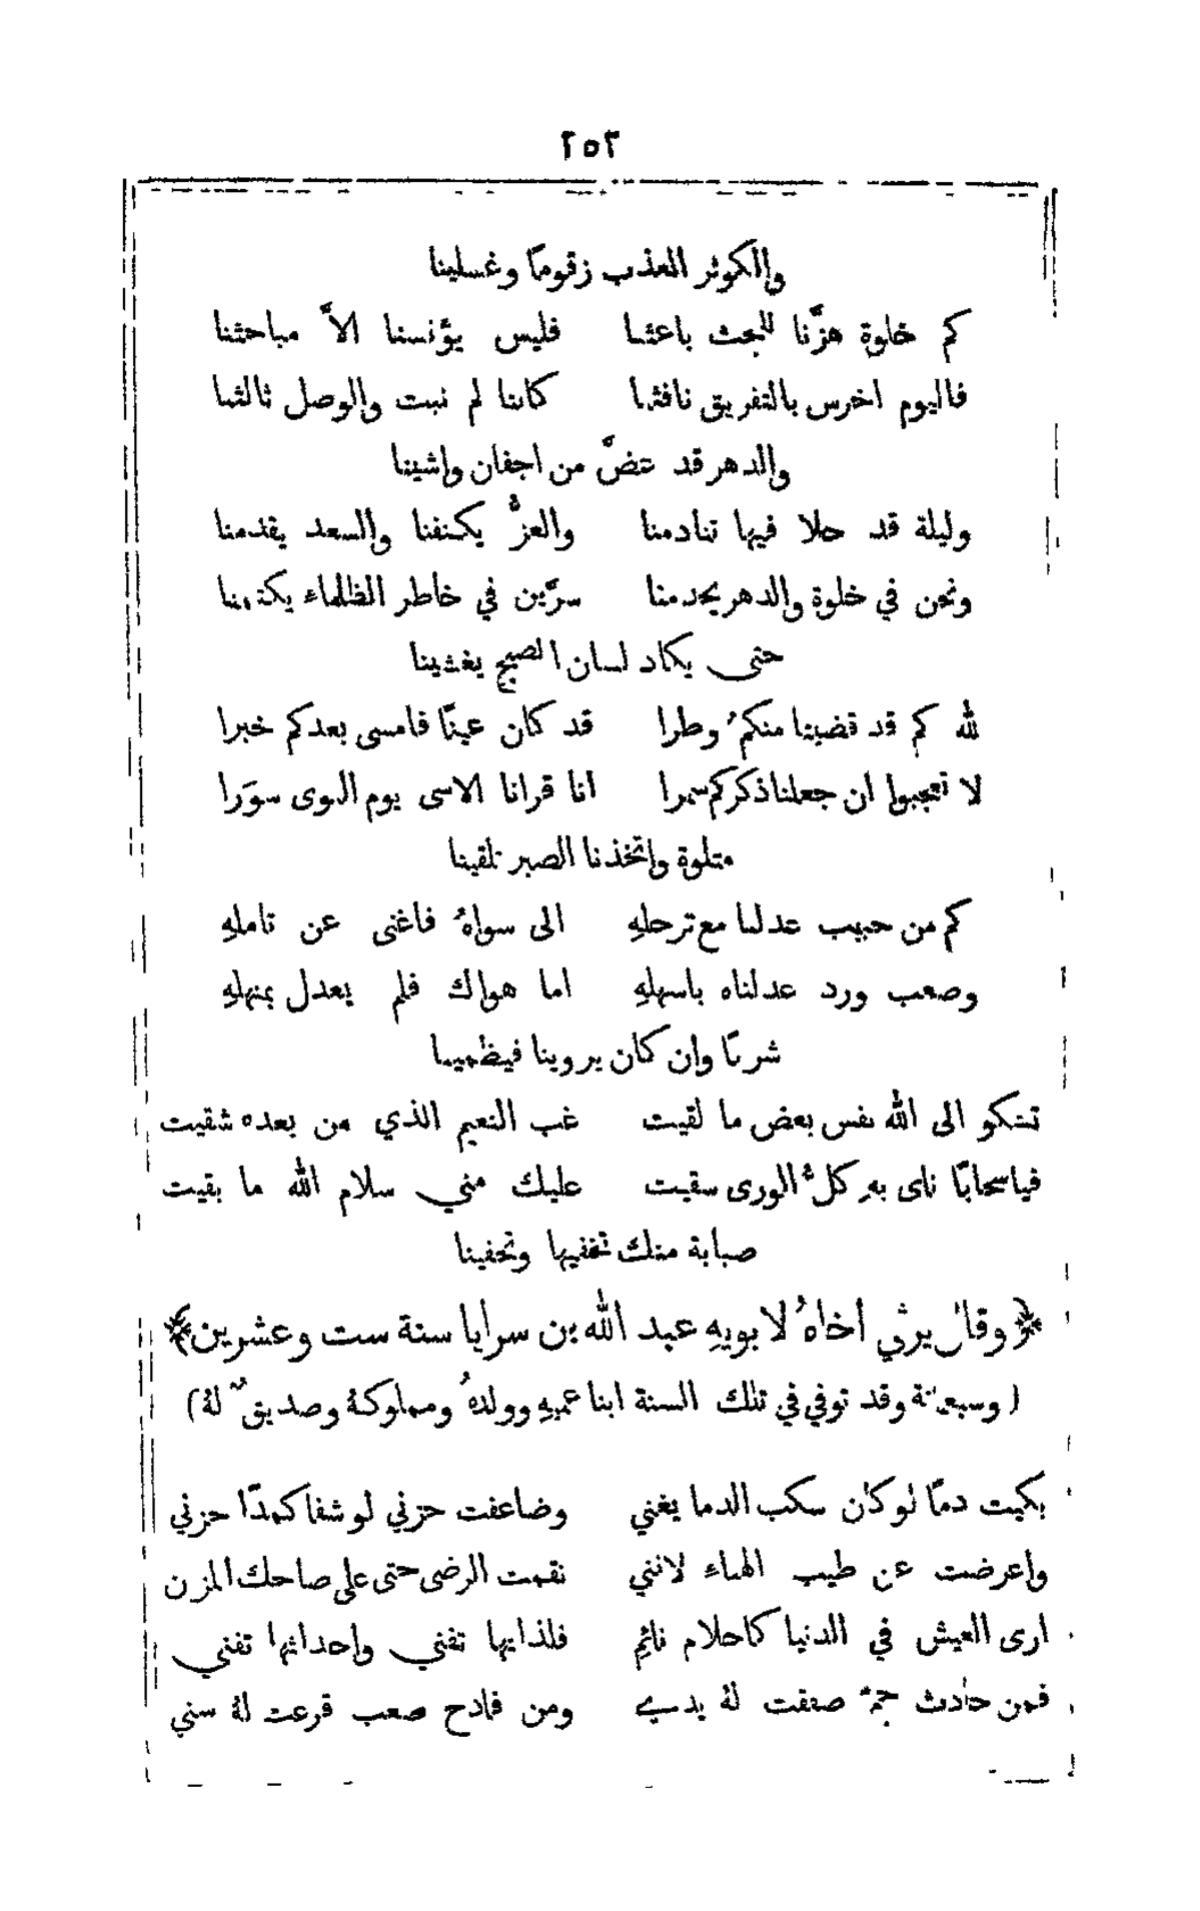 ٢٥٢
والكوثر العذب زقومًا وغسلينا
كم خلوة هزَّنا للبحث باعثنا فليس يؤنسنا الاَّ مباحثنا
فاليوم اخرس بالتفريق نافثنا كاننا لم نبت والوصل ثالثنا
والدهر قد غضَّ من اجفان واشينا
وليلة قد حلا فيها تنادمنا والعزُّ يكنفنا والسعد يقدمنا
ونحن في خلوة والدهر يخدمنا سرَّين في خاطر الظلماء يكتمنا
حتى يكاد لسان الصبح يفشينا
لله كم قد قضينا منكمُ وطرا قد كان عينًا فامسى بعدكم خبرا
لا تعجبوا ان جعلنا ذكركم سمرا انا قرانا الاسى يوم النوى سوَرا
متلوة واتخذنا الصبر تلقينا
كم من حبيب عدلنا مع ترحلهِ الى سواهُ فاغنى عن تاملهِ
وصعب ورد عدلناه باسهلهِ اما هواك فلم يعدل بمنهلهِ
شربًا وان كان يروينا فيظمينا
تشكو الى الله نفس بعض ما لقيت غب النعيم الذي من بعده شقيت
فياسحابًا ناى بهِ كلُّ الورى سقيت عليك مني سلام الله ما بقيت
صبابة منك تخفيها وتخفينا
﴿وقال يرثي أخاهُ لابويهِ عبد الله بن سرايا سنة ست وعشرين﴾
(وسبعمائة وقد توفي في تلك السنة ابنا عميهِ وولدهُ ومملوكهُ وصديقٌ لهُ)
بكيت دمًا لو كان سكب الدما يغني وضاعفت حزني لو شفا كمدًا حزني
واعرضت عن طيب الهناء لانني نقمت الرضى حتى على ضاحك المزن
ارى العيش في الدنيا كاحلام نائمٍ فلذاتها تفني واحداثها تفني
فمن حادث جمٍّ صفقت لهُ يدي ومن فادح صعب قرعت لهُ سني